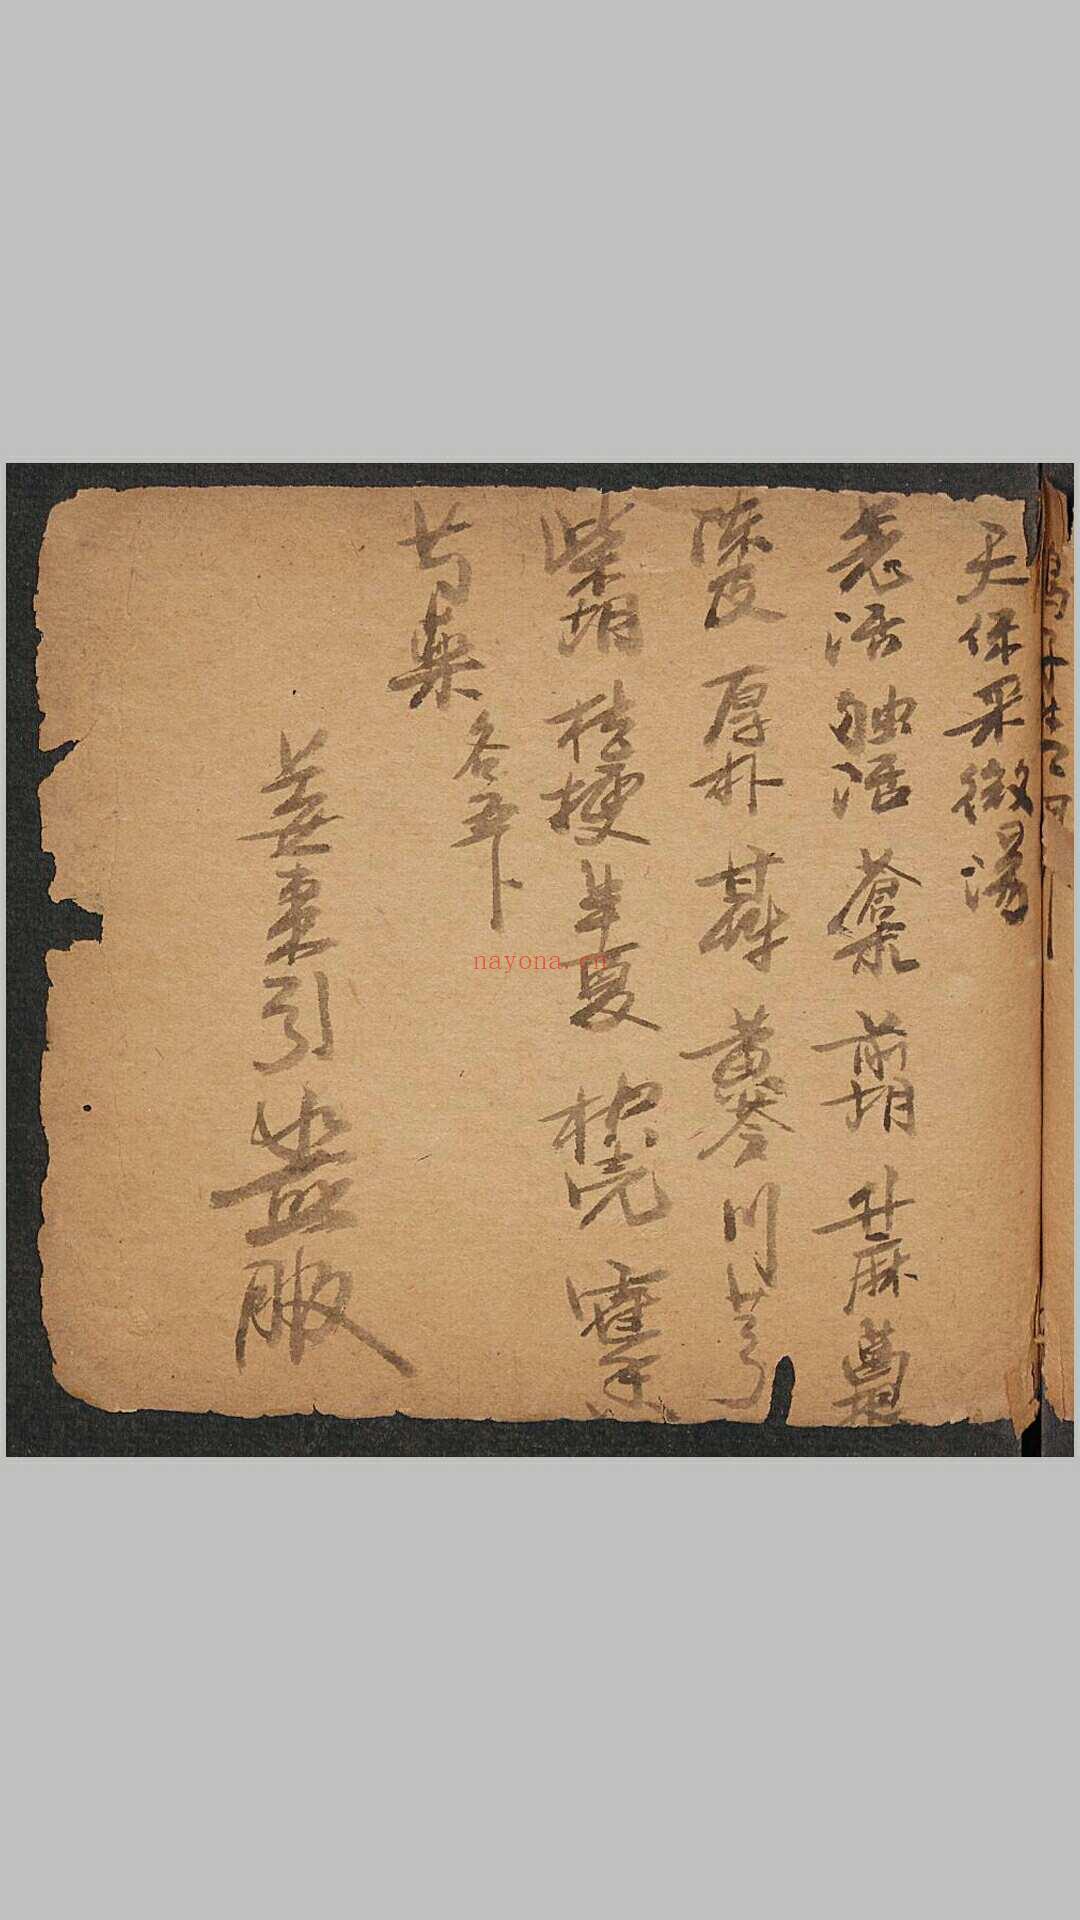 天保采微湯
羌活 独活 蒼朮 前胡 升麻 葛根
陳皮 厚朴 甘草 黄芩 川芎
柴胡 桔梗 半夏 枳壳 藿香
芍藥 各五卜
姜枣引 盐服
nayona.cn